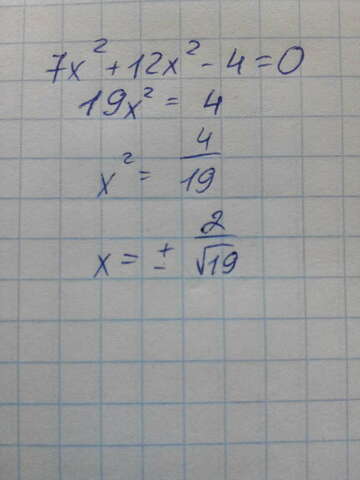 7x² + 12x² - 4 = 0
19x² = 4
x² = 4/19
x = ± 2/√19